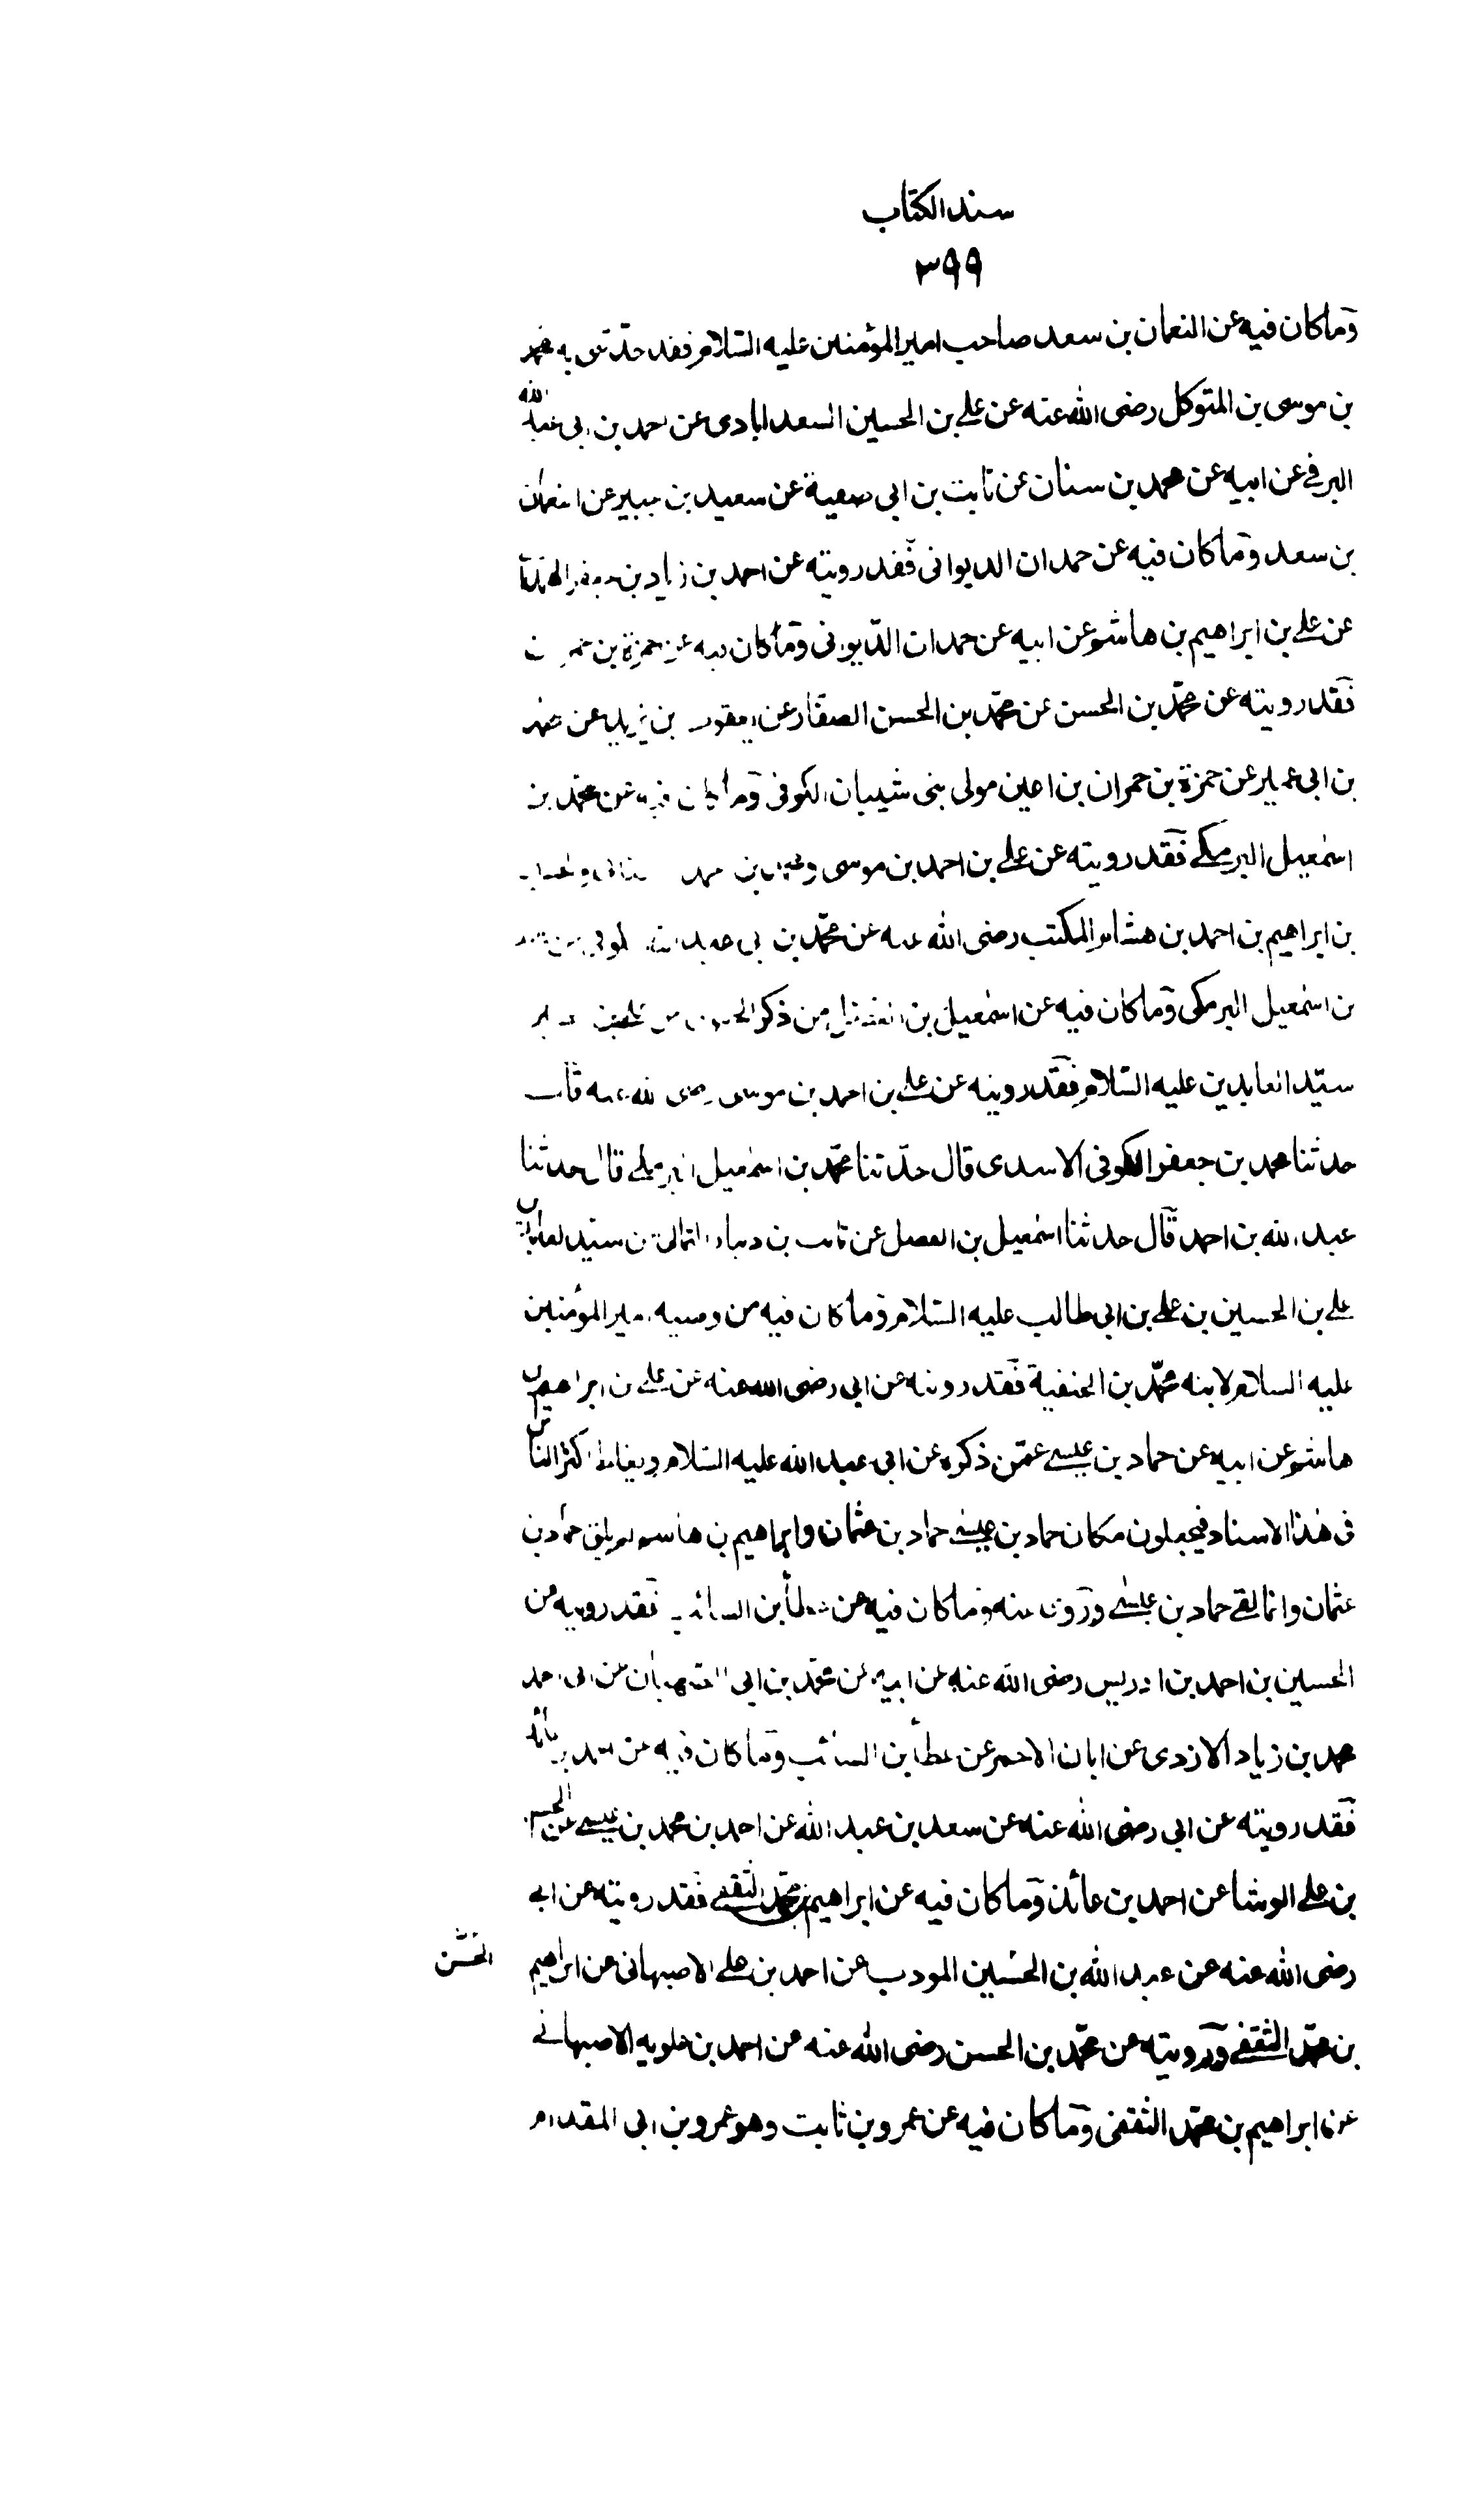 سند الكتاب
٣٩٩
وما كان فيه عن النعمان بن سعد صاحب امير المؤمنين عليه السّلام فقد حدّثنى به محمد
بن موسى بن المتوكل رضى الله عنه عن على بن الحسين السعد ابادى عن احمد بن ابى عبد الله
البرقى عن ابيه عن محمد بن سنان عن ثابت بن ابى صفية عن سعيد بن جبير عن النعمان
بن سعد وما كان فيه عن حمدان الديوانى فقد رويته عن احمد بن زياد بن جعفر الهمدانى
عن على بن ابراهيم بن هاشم عن ابيه عن حمدان الدّيوانى وما كان فيه عن حمزة بن حمران
فقد رويته عن محمّد بن الحسن عن محمّد بن الحسن الصفّار عن يعقوب بن يزيد عن محمد
بن ابى عمير عن حمزة بن حمران بن اعين مولى بنى شيبان الكوفى وما كان فيه عن محمّد بن
اسمعيل البرمكى فقد رويته عن على بن احمد بن موسى ومحمد بن
بن ابراهيم بن احمد بن هشام المكتب رضى الله عنه عن محمّد بن ابى عبد الله الكوفى عن محمد
بن اسمعيل البرمكى وما كان فيه عن اسمعيل بن الفضل من ذكر الحقوق عن على بن الحسين
سيّد العابدين عليه السّلام فقد رويته عن على بن احمد بن موسى رضى الله عنه قال
حدثنا محمد بن جعفر الكوفى الاسدى قال حدّثنا محمّد بن اسمعيل البرمكى قال حدثنا
عبد الله بن احمد قال حدثنا اسمعيل بن الفضل عن ثابت بن دينار الثمالى عن سيّد العابدين
على بن الحسين بن على بن ابى طالب عليه السّلام وما كان فيه من وصيه امير المؤمنين
عليه السلام لابنه محمّد بن الحنفية فقد رويته عن ابى رضى الله عنه عن على بن ابراهيم بن
هاشم عن ابيه عن حماد بن عيسى عمّن ذكره عن ابى عبد الله عليه السّلام ويغلط اكثر الناس
فى هذا الاسناد فيجعلون مكان حماد بن عيسى حماد بن عثمان وابراهيم بن هاشم لم يلق حماد بن
عثمان وانما لقى حماد بن عيسى وروى عنه وما كان فيه عن عطأ بن السائب فقد رويته عن
الحسين بن احمد بن ادريس رضى الله عنه عن ابيه عن محمّد بن ابى الصهبان عن ابى احمد
محمد بن زياد الازدى عن ابان الاحمر عن عطأ بن السائب وما كان فيه عن احمد بن عائذ
فقد رويته عن ابى رضى الله عنه عن سعد بن عبد الله عن احمد بن محمد بن عيسى عن الحسن
بن على الوشا عن احمد بن عائذ وما كان فيه عن ابراهيم بن محمّد الثقفى فقد رويته عن ابى
رضى الله عنه عن عبد الله بن الحسين المودب عن احمد بن على الاصبهانى عن ابراهيم
الحسن
بن محمّد الثقفى ورويته عن محمّد بن الحسن رضى الله عنه عن احمد بن علويه الاصبهانى
عن ابراهيم بن محمّد الثقفى وما كان فيه عن عمرو بن ثابت وهو عمرو بن ابى المقدام